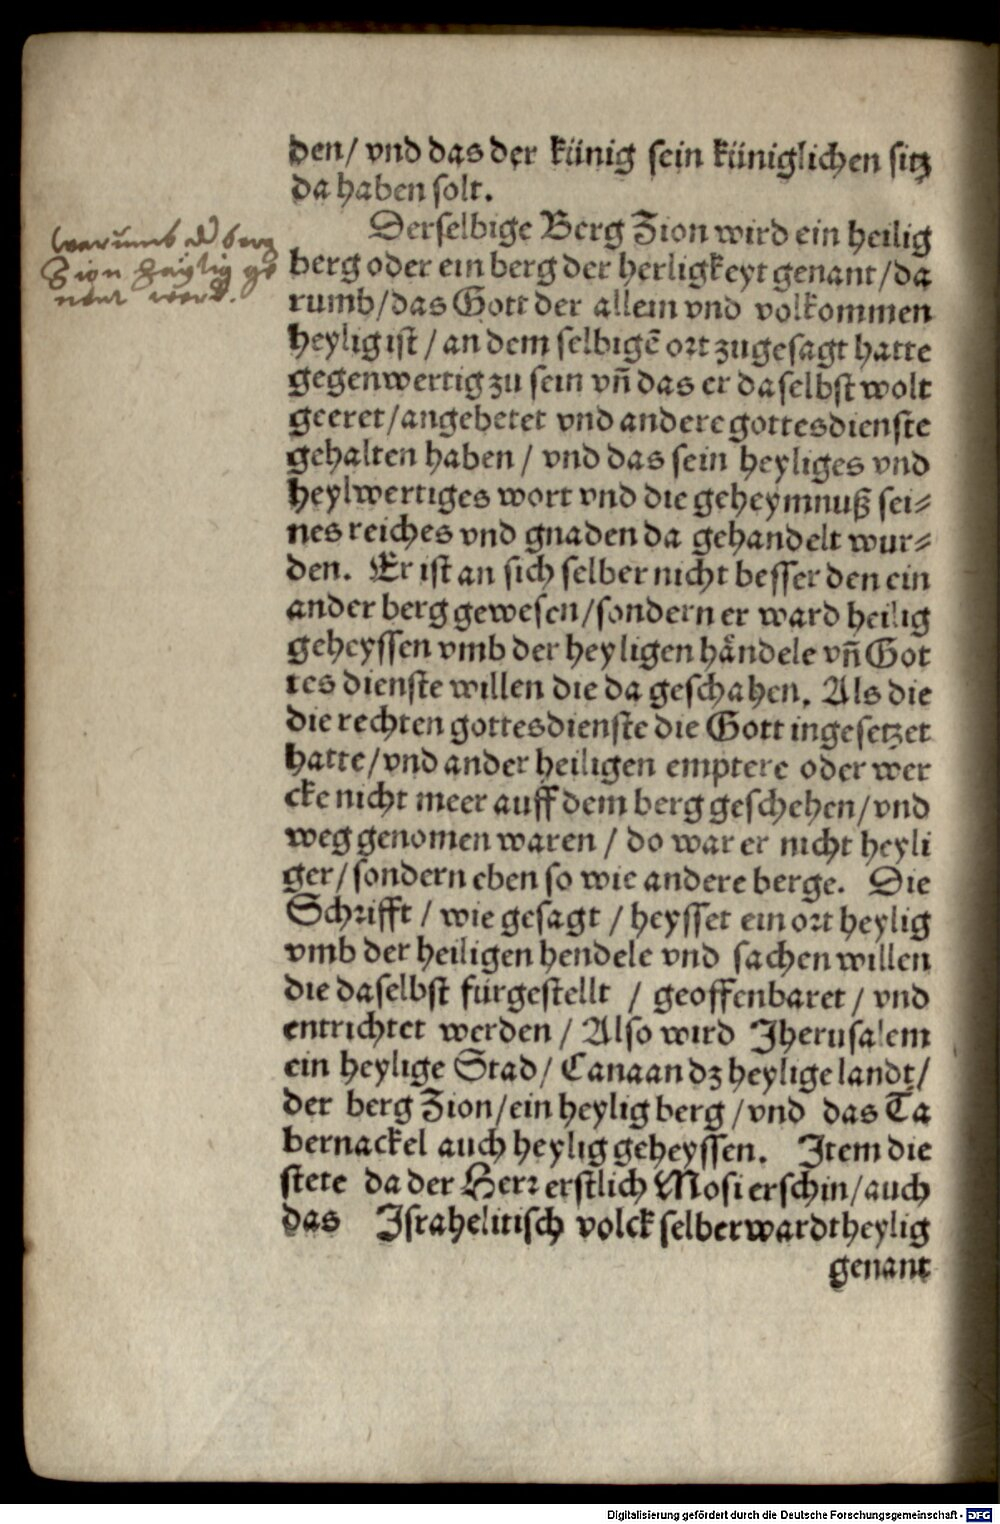 den/ vnd das der künig sein küniglichen sitz
da haben solt.
Derselbige Berg Zion wird ein heilig
berg oder ein berg der herligkeyt genant/da
rumb/das Gott der allein vnd volkommen
heylig ist / an dem selbigē ort zugesagt hatte
gegenwertig zu sein vn̄ das er daselbst wolt
geeret/angebetet vnd andere gottesdienste
gehalten haben / vnd das sein heyliges vnd
heylwertiges wort vnd die geheymnuß sei⸗
nes reiches vnd gnaden da gehandelt wur⸗
den. Er ist an sich selber nicht besser den ein
ander berg gewesen/sondern er ward heilig
geheyssen vmb der heyligen händele vn̄ Got
tes dienste willen die da geschahen. Als die
die rechten gottesdienste die Gott ingesetzet
hatte/vnd ander heiligen emptere oder wer
cke nicht meer auff dem berg geschehen/vnd
weg genomen waren / do war er nicht heyli
ger/sondern eben so wie andere berge. Die
Schrifft / wie gesagt / heysset ein ort heylig
vmb der heiligen hendele vnd sachen willen
die daselbst fürgestellt / geoffenbaret / vnd
entrichtet werden / Also wird Jherusalem
ein heylige Stad/ Canaan dz heylige landt/
der berg Zion/ein heylig berg /vnd das Ta
bernackel auch heylig geheyssen. Item die
stete da der Herr erstlich Mosi erschin/auch
das Israhelitisch volck selber wardt heylig
genant
warumb d berg
Zion heylig ge
nent werd.
Digitalisierung gefördert durch die Deutsche Forschungsgemeinschaft - DFG